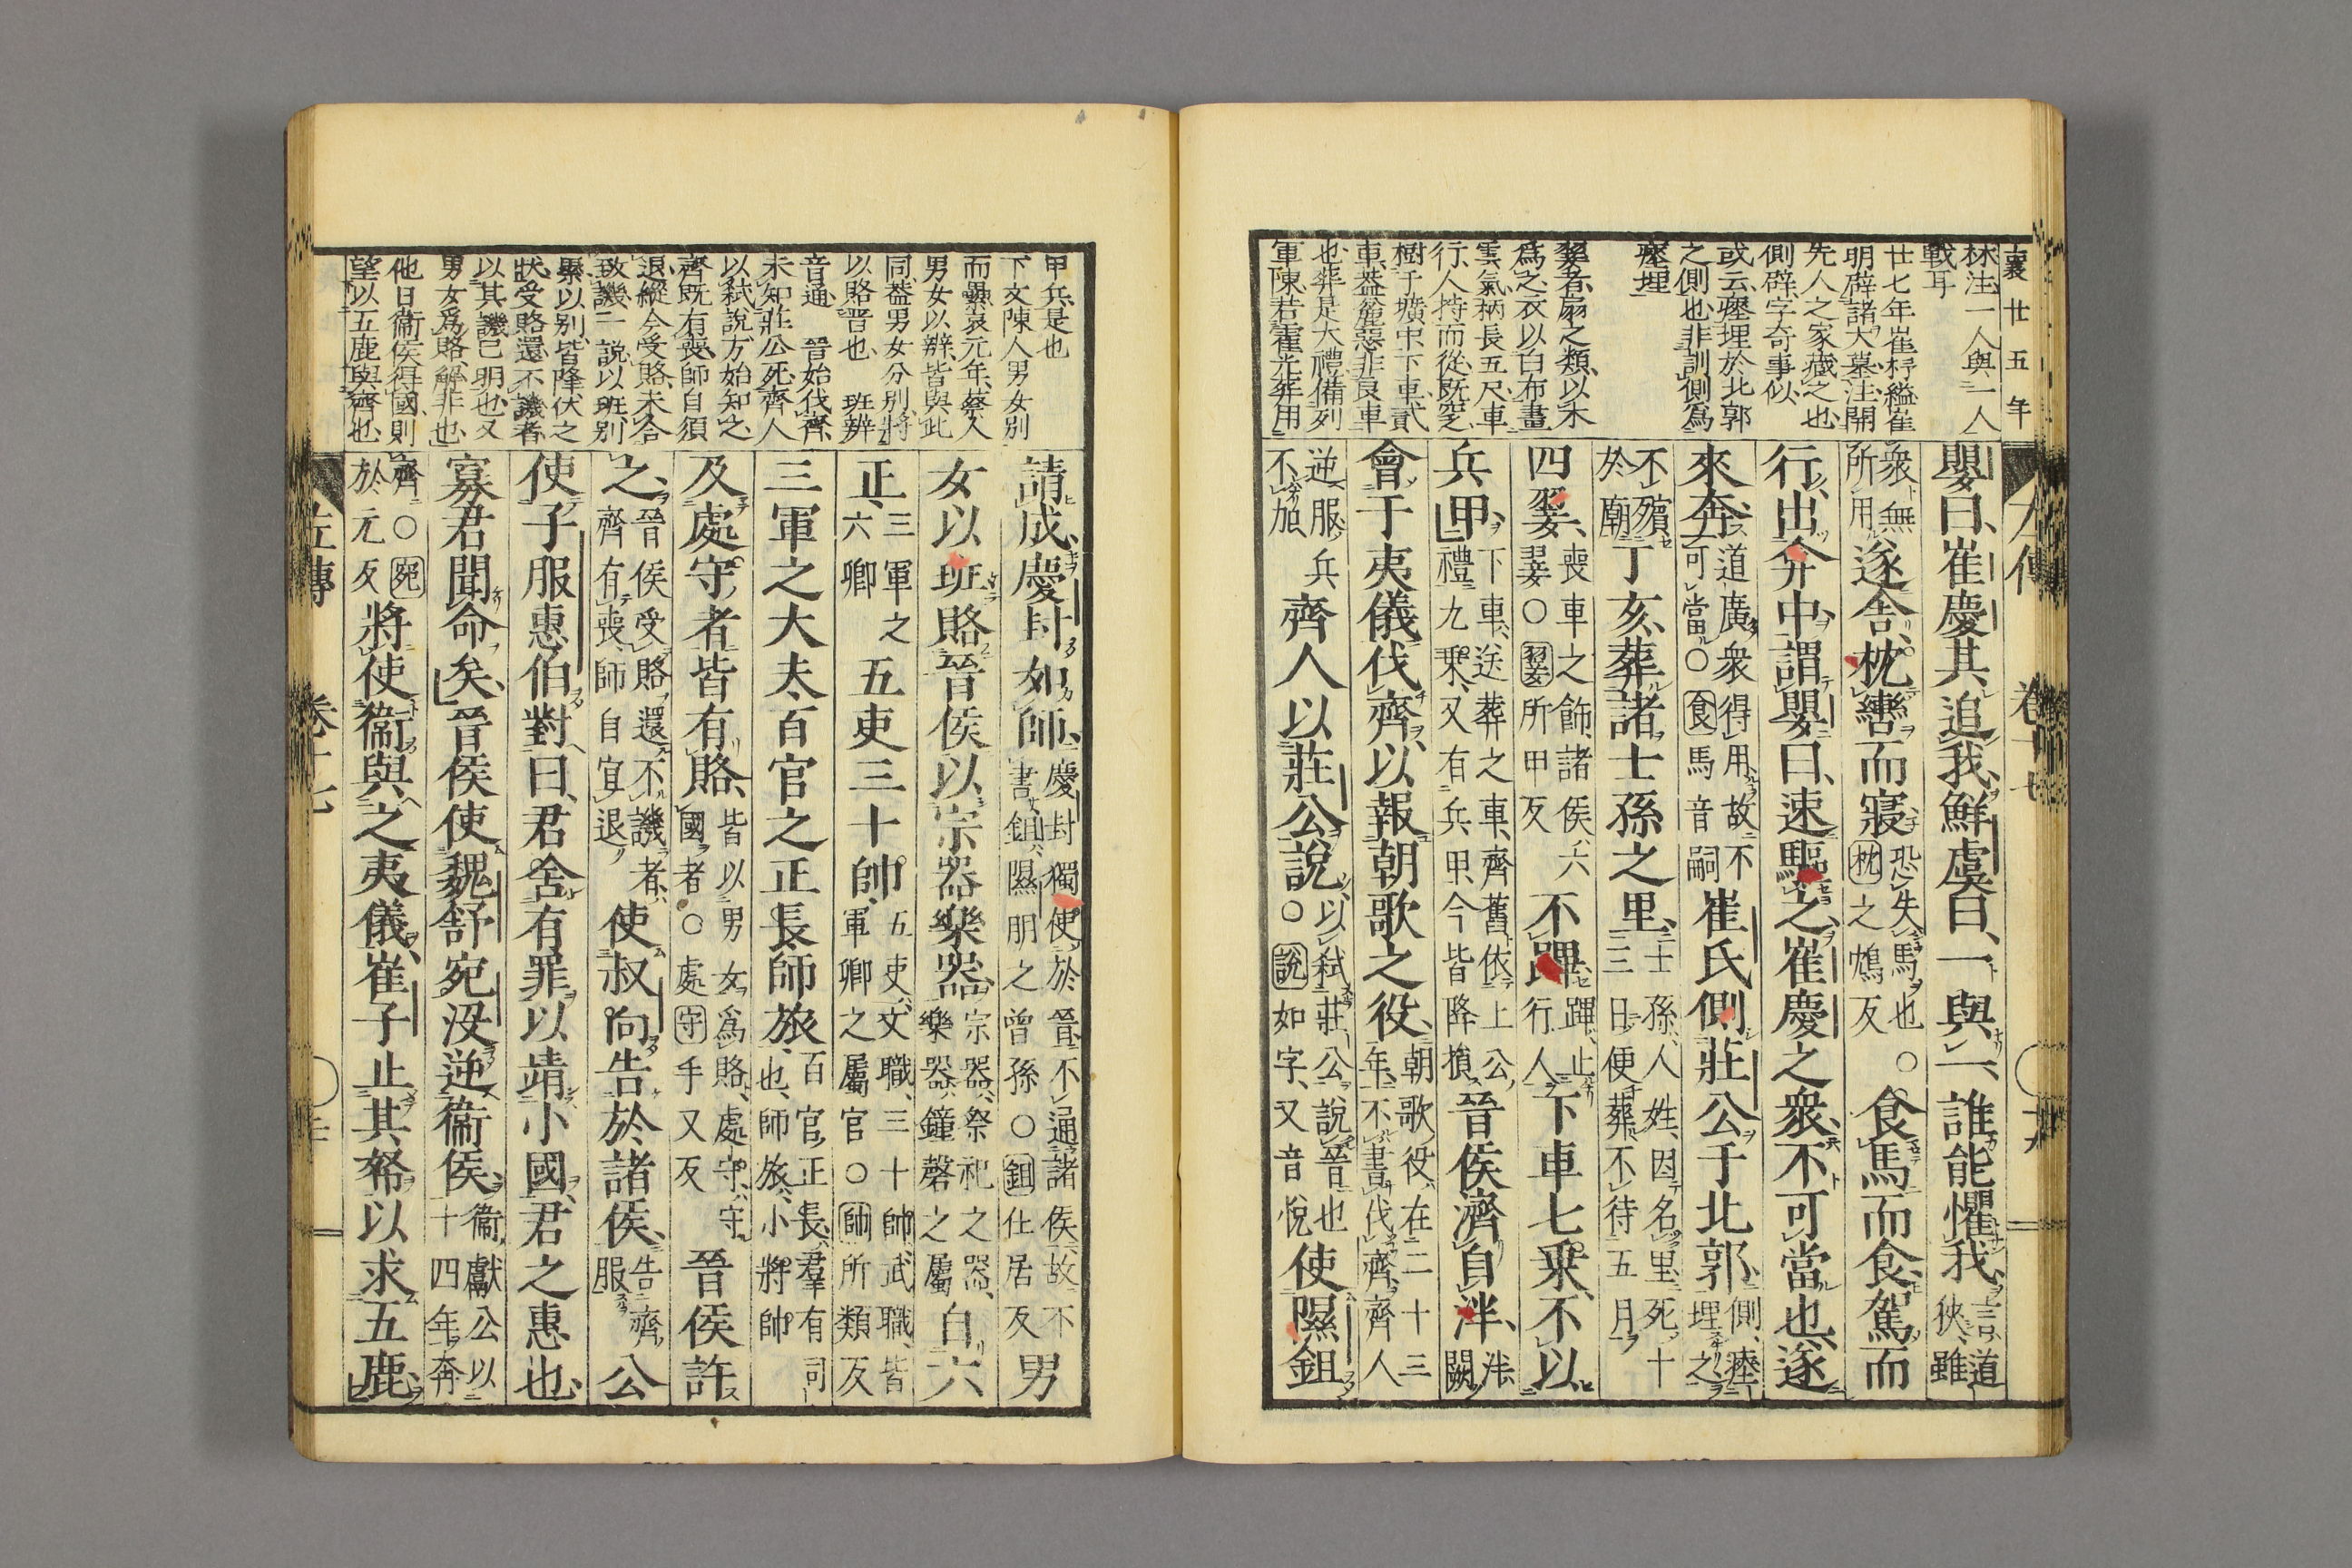 襄廿五年
林注一人與一人
戰耳
廿七年崔杼縊崔
明辟諸大墓注開
先人之家藏之也
側辟字奇事似
或云瘞埋於北郭
之側也非訓側為
瘞埋
翣者扇之類以木
為之衣以白布畫
雲氣柄長五尺車
行人持而從既窆
樹于壙中下車貳
車蓋麤惡非良車
也葬是大禮備列
軍陳若霍光葬用
左傳 卷十七
嬰曰崔慶其追我鮮虞曰一與一誰能懼我言道狹雖
衆無所用遂舍枕轡而寢恐失馬也○枕之鴆反食馬而食駕而
行出弇中謂嬰曰速驅之崔慶之衆不可當也遂
來奔道廣衆得用故不可當○食馬音嗣崔氏側莊公于北郭側瘞埋之
不殯於廟丁亥葬諸士孫之里士孫人姓因名里死十三日便葬不待五月
四翣喪車之飾諸侯六翣○翣所甲反不蹕蹕止行人下車七乘不以
兵甲下車送葬之車齊舊依上公禮九乘又有兵甲今皆降損晉侯濟自泮泮闕
會于夷儀伐齊以報朝歌之役朝歌役在二十三年不書伐齊齊人
逆服兵不加齊人以莊公說以弒莊公說晉也○說如字又音悅使隰鉏
甲兵是也
下文陳人男女別
而纍哀元年蔡人
男女以辨皆與此
同蓋男女分別將
以賂晉也 班辨
音通 晉始伐齊
未知莊公死齊人
以弒說方始知之
齊既有喪師自須
退縱令受賂未合
致譏二說以班別
纍以別皆降伏之
狀受賂還不譏者
以其譏已明也又
男女為賂解非也
他日衞侯得國則
望以五鹿與齊也
請成慶封如師慶封獨使於晉不通諸侯故不書鉏隰朋之曾孫○鉏仕居反男
女以班賂晉侯以宗器樂器宗器祭祀之器樂器鐘磬之屬自六
正三軍之六卿五吏三十帥五吏文職三十帥武職皆軍卿之屬官○帥所類反
三軍之大夫百官之正長師旅百官正長羣有司也師旅小將帥
及處守者皆有賂皆以男女為賂處守守國者○處守手又反晉侯許
之晉侯受賂還不譏者齊有喪師自宜退使叔向告於諸侯告齊服公
使子服惠伯對曰君舍有罪以靖小國君之惠也
寡君聞命矣晉侯使魏舒宛沒逆衞侯衞獻公以十四年奔
齊○宛於元反將使衞與之夷儀崔子止其帑以求五鹿
左傳 卷十七